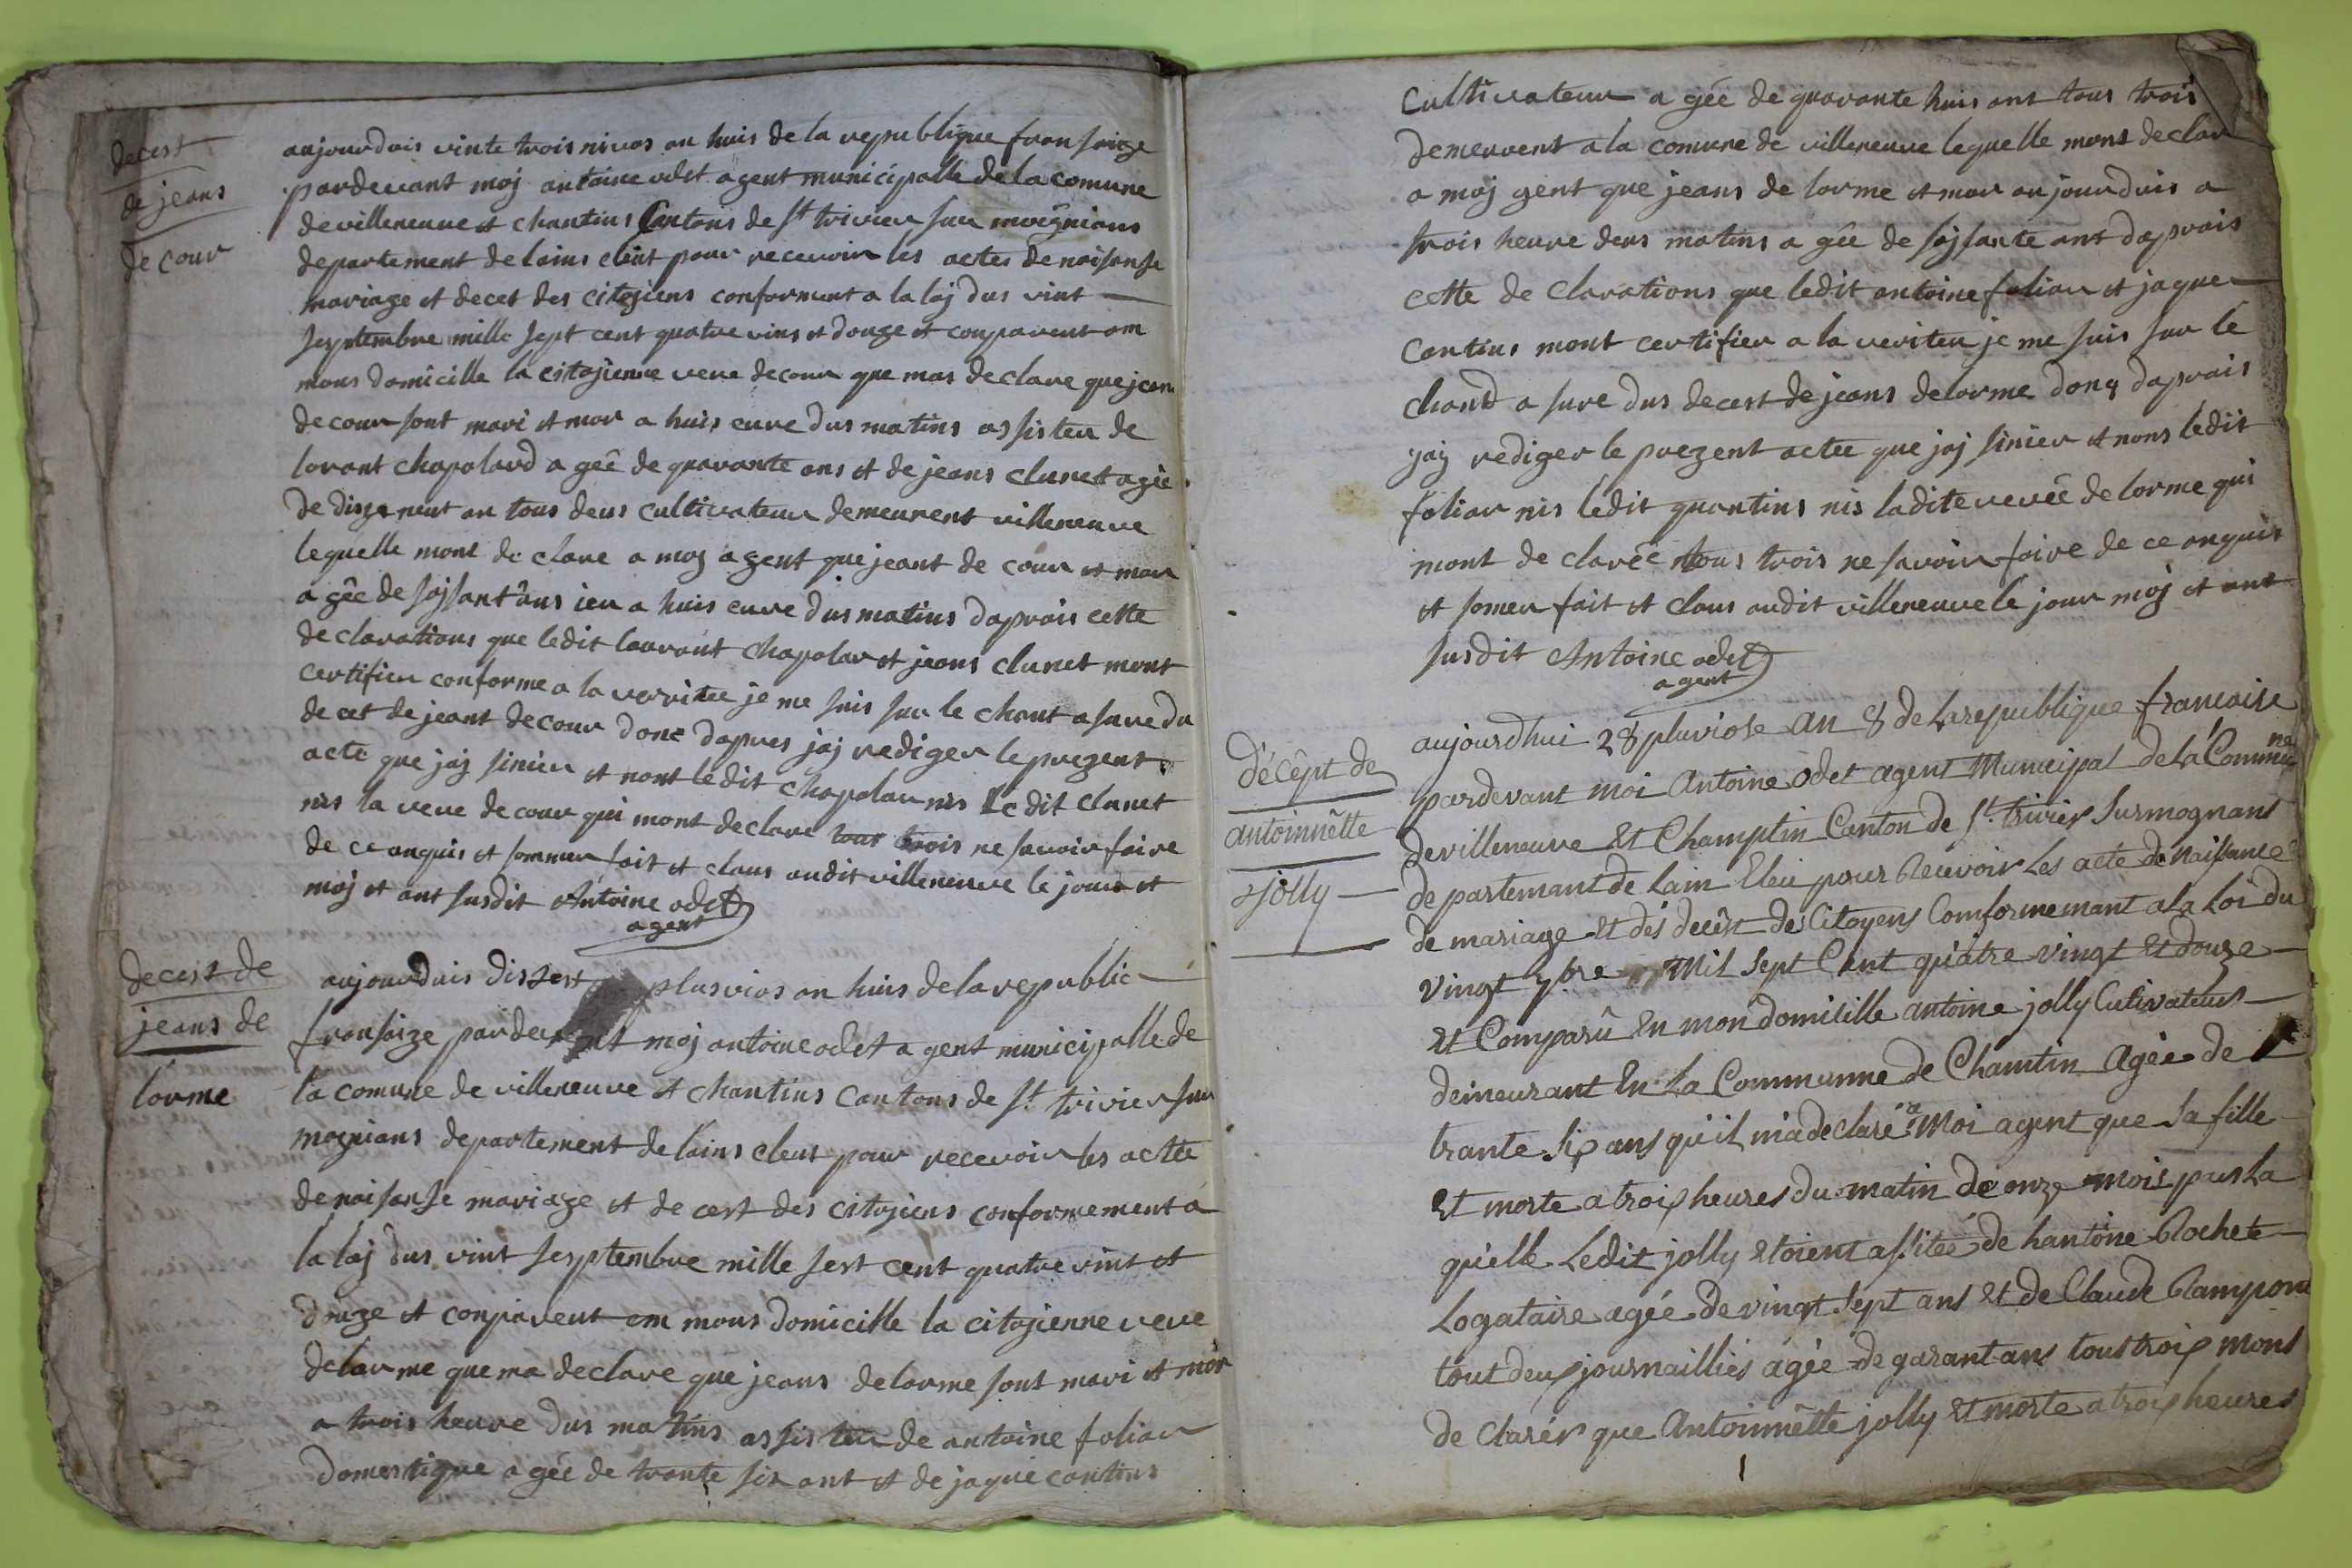 decest
de jeans
de cour
aujourduis vinte trois nivos an huis de la republique fransaize
pardevant moj antoine odet agent municipalle de la comune
de villeneuve et chantins Cantons de st trivier sur moignians
departement de lains eleut pour recevoir les actes de naisanse
mariage et decet des citojiens conforment a la loj dus vint
septembre mille sept cent quatre vins et douze et conparent om
mons domicille la citojienne veve decour que mas declare que jean
decour sont mari et mor a huis eure dus matins assisteu de
lorant chapolard a geê de quarante ans et de jeans clunet agée
de dize neut an tous deus cultivateur demeurent villeneuve
lequelle mont de clare a moj agent que jeant de cour et mor
a gêe de sojsant ans ieu a huis eure dus matins daprais cette
declarations que ledit lourant chapolar et jeans clunet mont
certifieu conforme a la verritee je me suis sur le chant a sure du
decet de jeant decour donc dapres jaj rediger le prezent
acte que jaj sinier et nont ledit chapolar nis le dit clunet
nis la veve decour qui mont declare tous trois ne savoir faire
de ce anquis et sommer fait et claus audit villeneuve le jour et
moj et ant susdit Antoine odet
agent
decest de
jeans de
lorme
aujourduis dissest plusvios an huis de la republic
fransaize pardevent moj antoine odet a gent municipalle de
la comune de villeneuve et chantins Cantons de st trivier sur
mognians departement de lains eleut pour recevoir les actée
de naisanse mariage et de cest des citojiens conformement a
la loj dus vint septembre mille sest cent quatre vint et
douze et conparent om mons domicille la citojienne veve
delorme que ma declare que jeans delorme sont mari et mor
a trois heure dus matins assisteu de antoine foliar
domestique a gée de trante sis ant et de jaque cantins
Cultivateur a gée de quarante huis ant tous trois
demeurent a la comune de villeneuve lequelle mont declar
a moj agent que jeans de lorme et mor aujourduis a
trois heure deus matins a gêe de sojsante ant daprais
cette de clarations que ledit antoine foliar et jaque
Cantins mont certifier a la veriteu je me suis sur le
chant a sure dus decest de jeans delorme donq daprais
jaj rediger le prezent actee que jaj sinier et nons ledit
foliar nis ledit quantins nis ladite vevéé de lorme qui
mont de clarêe tous trois ne savoir faire de ce anquis
et somer fait et claus audit villeneuve le jour moj et ant
susdit Antoine odet
agent
décêpt de
antoinnêtte
jolly
aujourdhui 28 pluviose an 8 de La republique francaise
pardevant moi Antoine Odet agent Municipal de La Commune
de villeneuve Et Champtin Canton de st. trivier Surmognans
departemant de Lain Eleü pour Recevoir Les acte de Naissance
de mariage Et dés decêst de Citoyens Comformemant a La Loi du
vingt 7bre Mil Sept Cent quâtre vingt Et douze
Et Comparû En mon domicille antoine jolly Cutivateur
demeurant En La Communne de Chamtin Agée de
trante Six ans qu'il m'a declaré a Moi agent que Sa fille
Et morte a trois heures du matin de onze mois par La
quelle Ledit jolly Etoient assitée de hantoine Rochete
Logataire agée de vingt Sept ans Et de Claude Rampont
tout deux journailliés âgée de garant ans tous trois mont
de Clarér que Antoinnêtte jolly Et morte a trois heures